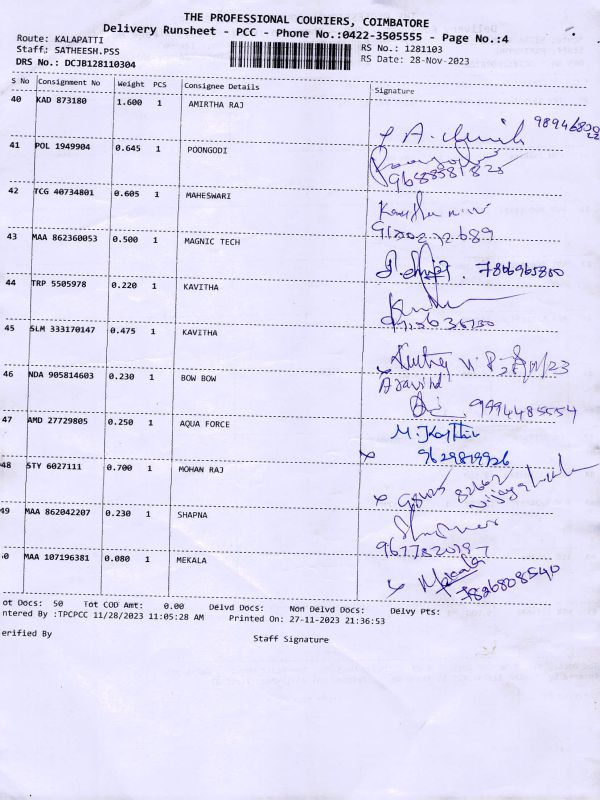 THE PROFESSIONAL COURIERS, COIMBATORE
Delivery Runsheet - PCC - Phone No.:0422-3505555 - Page No.:4
Route: KALAPATTI
RS No.: 1281103
Staff: SATHEESH.PSS
RS Date: 28-Nov-2023
DRS No.: DCJB128110304
S No Consignment No Weight PCS Consignee Details Signature
40 KAD 873180 1.600 1 AMIRTHA RAJ
41 POL 1949904 0.645 1 POONGODI
42 TCG 40734801 0.605 1 MAHESWARI
43 MAA 862360053 0.500 1 MAGNIC TECH
7806965800
44 TRP 5505978 0.220 1 KAVITHA
45 SLM 333170147 0.475 1 KAVITHA
46 NDA 905814603 0.230 1 BOW BOW
Aravind
9994485554
47 AMD 27729805 0.250 1 AQUA FORCE
9629879926
48 STY 6027111 0.700 1 MOHAN RAJ
49 MAA 862042207 0.230 1 SHAPNA
50 MAA 107196381 0.080 1 MEKALA
Mekala
7826808540
ot Docs: 50 Tot COD Amt: 0.00 Delvd Docs: Non Delvd Docs: Delvy Pts:
ntered By :TPCPCC 11/28/2023 11:05:28 AM Printed On: 27-11-2023 21:36:53
erified By Staff Signature